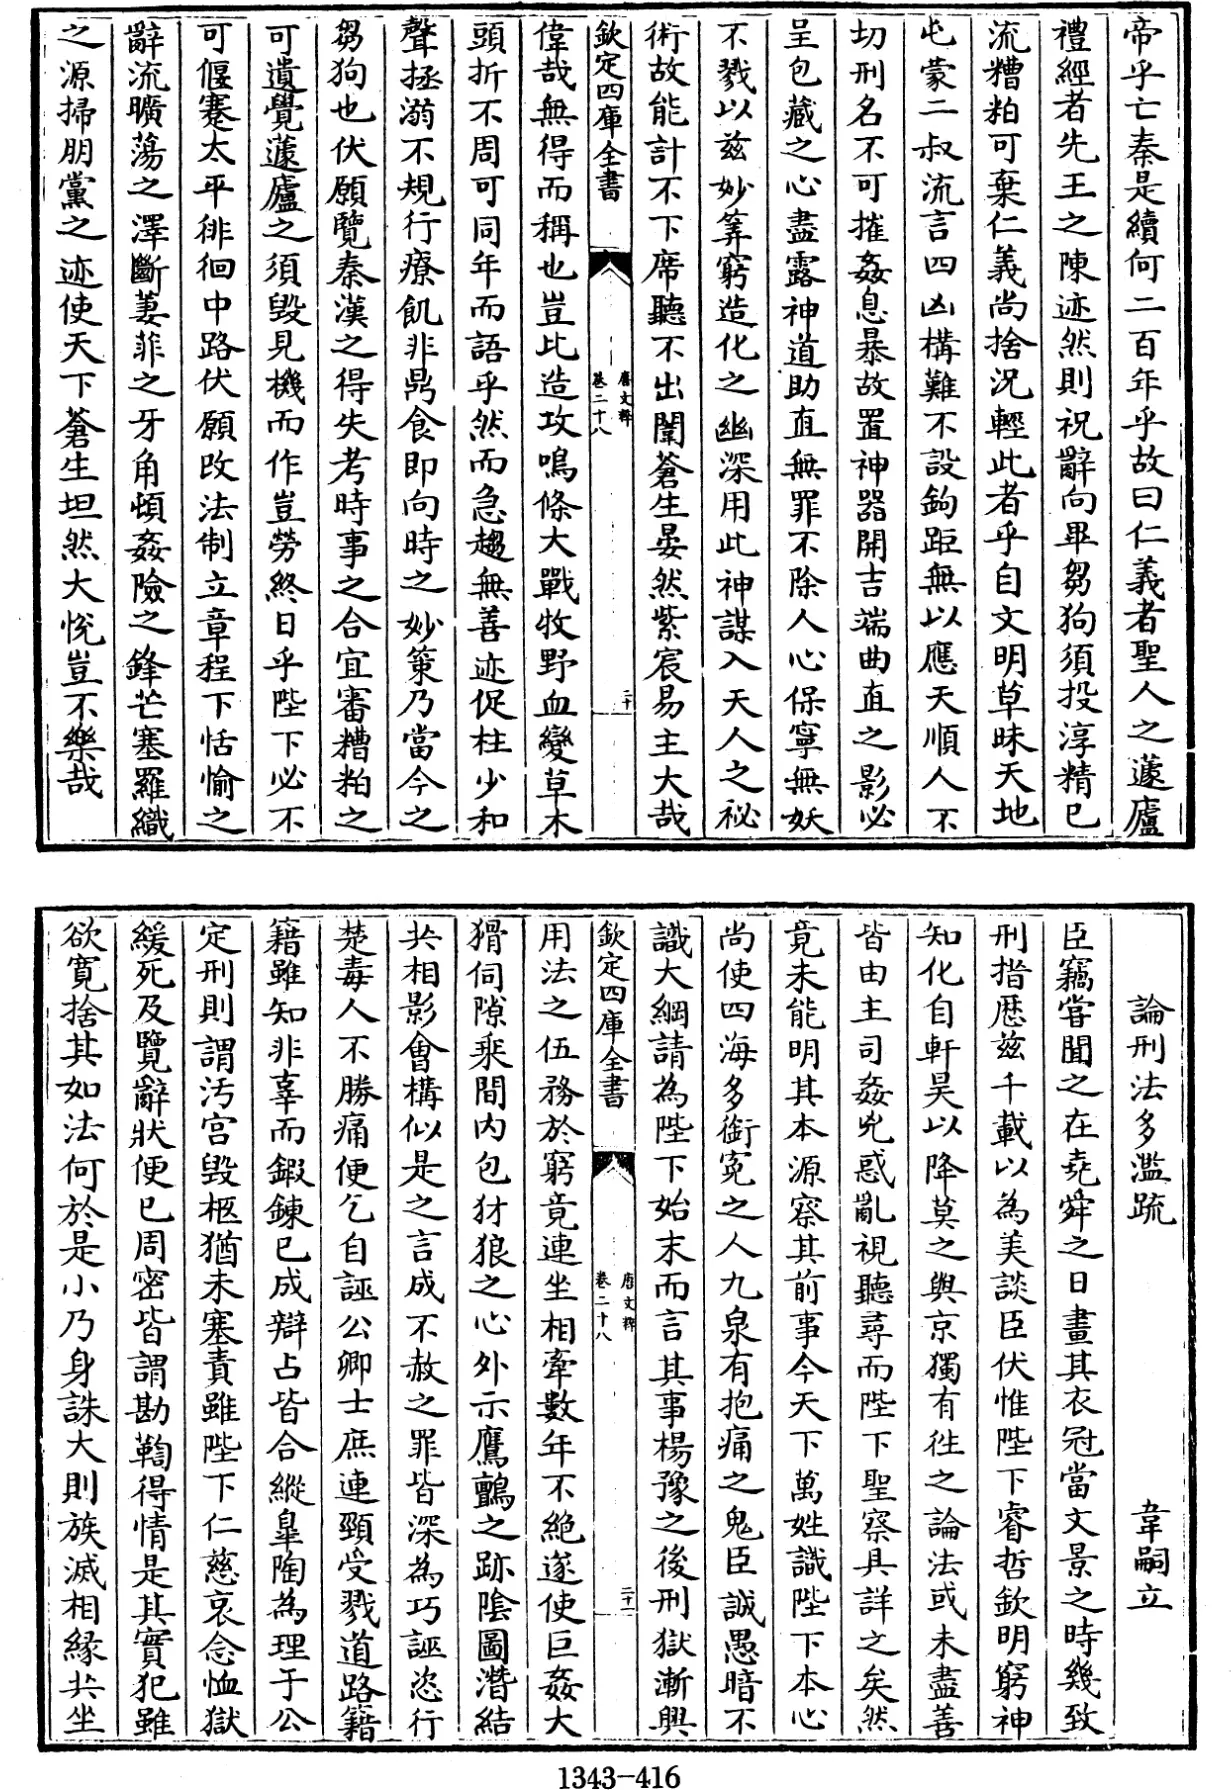 帝乎亡秦是續何二百年乎故曰仁義者聖人之蘧廬
禮經者先王之陳迹然則祝辭向畢芻狗須投淳精已
流糟粕可棄仁義尚捨況輕此者乎自文明草昧天地
屯蒙二叔流言四凶構難不設鉤距無以應天順人不
切刑名不可摧姦息暴故置神器開吉端曲直之影必
呈包藏之心盡露神道助直無罪不除人心保寧無妖
不戮以兹妙筭窮造化之幽深用此神謀入天人之秘
術故能計不下席聽不出闈蒼生晏然紫宸易主大哉
欽定四庫全書
唐文粹
卷二十八
二十
偉哉無得而稱也豈比造攻鳴條大戰牧野血變草木
頭折不周可同年而語乎然而急趨無善迹促柱少和
聲拯溺不規行療飢非鼎食即向時之妙策乃當今之
芻狗也伏願覽秦漢之得失考時事之合宜審糟粕之
可遺覺蘧廬之須毀見機而作豈勞終日乎陛下必不
可偃蹇太平徘徊中路伏願改法制立章程下恬愉之
辭流曠蕩之澤斷萋菲之牙角頓姦險之鋒芒塞羅織
之源掃朋黨之迹使天下蒼生坦然大悅豈不樂哉
論刑法多濫疏
韋嗣立
臣竊甞聞之在堯舜之日畫其衣冠當文景之時幾致
刑措歷兹千載以為美談臣伏惟陛下睿哲欽明窮神
知化自軒昊以降莫之與京獨有徃之論法或未盡善
皆由主司姦兇惑亂視聽尋而陛下聖察具詳之矣然
竟未能明其本源察其前事今天下萬姓識陛下本心
尚使四海多銜冤之人九泉有抱痛之鬼臣誠愚暗不
識大綱請為陛下始末而言其事楊豫之後刑獄漸興
欽定四庫全書
唐文粹
卷二十八
二十一
用法之伍務於窮竟連坐相牽數年不絶遂使巨姦大
猾伺隙乘間内包豺狼之心外示鷹鸇之跡陰圖潛結
共相影會構似是之言成不赦之罪皆深為巧誣恣行
楚毒人不勝痛便乞自誣公卿士庶連頸受戮道路籍
籍雖知非辜而鍛鍊已成辯占皆合縱臯陶為理于公
定刑則謂汚宫毁柩猶未塞責雖陛下仁慈哀念恤獄
緩死及覽辭狀便已周密皆謂勘鞫得情是其實犯雖
欲寛捨其如法何於是小乃身誅大則族滅相緣共坐
1343-416